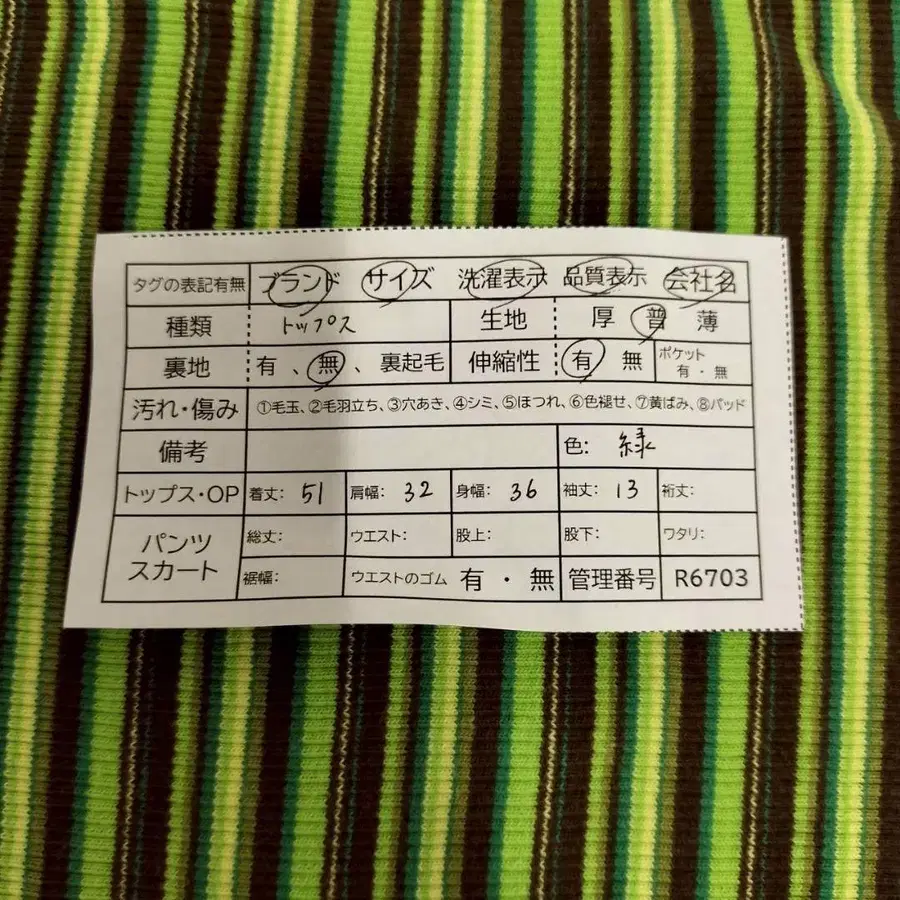 タグの表記有無 ブランド サイズ 洗濯表示 品質表示 会社名
種類 トップス 生地 厚 普 薄
裏地 有 、 無 、 裏起毛 伸縮性 有 無 ポケット 有 ・ 無
汚れ・傷み ①毛玉、②毛羽立ち、③穴あき、④シミ、⑤ほつれ、⑥色褪せ、⑦黄ばみ、⑧パッド
備考 色: 緑
トップス・OP 着丈: 51 肩幅: 32 身幅: 36 袖丈: 13 裄丈:
パンツ スカート 総丈: ウエスト: 股上: 股下: ワタリ:
裾幅: ウエストのゴム 有 ・ 無 管理番号 R6703